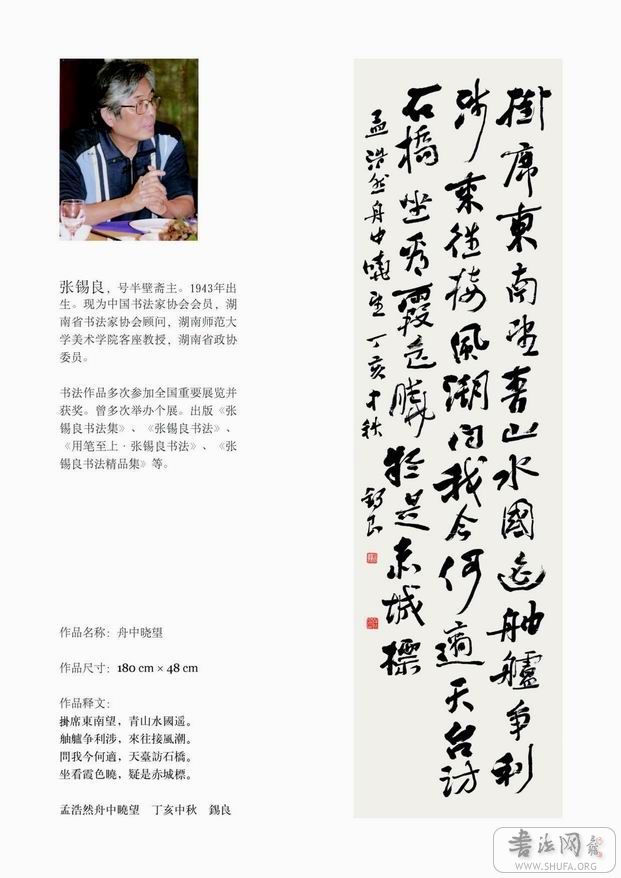 张锡良，号半壁斋主。1943年出
生。现为中国书法家协会会员，湖
南省书法家协会顾问，湖南师范大
学美术学院客座教授，湖南省政协
委员。
书法作品多次参加全国重要展览并
获奖。曾多次举办个展。出版《张
锡良书法集》、《张锡良书法》、
《用笔至上·张锡良书法》、《张
锡良书法精品集》等。
作品名称：舟中晓望
作品尺寸：180 cm × 48 cm
作品释文：
掛席東南望，青山水國遥。
舳艫争利涉，來往接風潮。
問我今何適，天臺訪石橋。
坐看霞色曉，疑是赤城標。
孟浩然舟中曉望 丁亥中秋 錫良
掛席東南望青山水國遥舳艫争利
涉來往接風潮問我今何適天台訪
石橋坐看霞色曉疑是赤城標
孟浩然舟中曉望 丁亥中秋 錫良
書法网
WWW.SHUFA.ORG